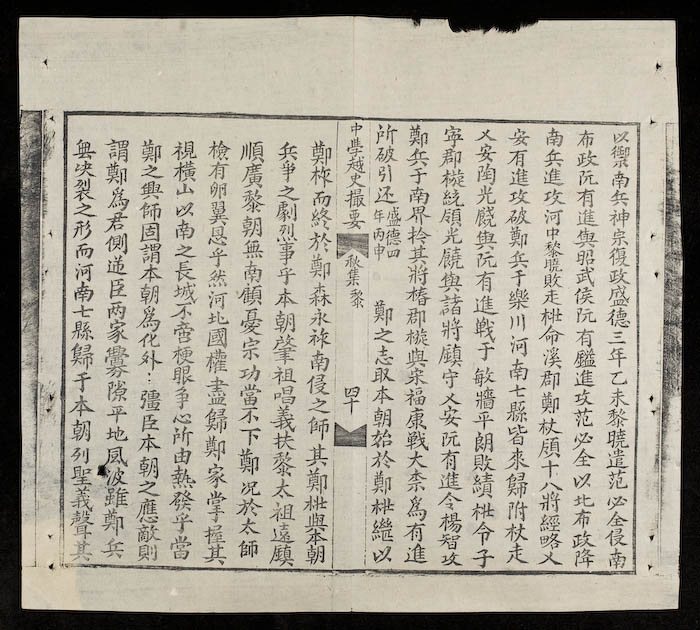 以禦南兵神宗復政盛德三年乙未黎曉遣范必全侵南
布政阮有進與昭武侯阮有鎰進攻范必全以北布政降
南兵進攻河中黎曉敗走梉命溪郡鄭杖領十八將經略乂
安有進攻破鄭兵于樂川河南七縣皆來歸附杖走
乂安陶光饒與阮有進戰于敏牆平朗敗績梉令子
寧郡統領光饒與諸將鎮守乂安阮有進令楊智攻
鄭兵于南界拎其將郡與宋福康戰大柰為有進
所破引还盛德四年丙申 鄭之志取本朝始於鄭梉繼以
中學越史撮要 秋集黎 四十
鄭柞而終於鄭森永祿南侵之師其鄭梉與本朝
兵爭之劇烈事乎本朝肇祖唱義扶黎太祖遠鎮
順廣黎朝無南顧憂宗功當不下鄭况於太師
檢有卵翼恩乎然河北國權盡歸鄭家掌握其
視橫山以南之長城不啻梗眼争心所由熱發乎當
鄭之興師固謂本朝為化外〻彊臣本朝之應敵則
謂鄭為君側逆臣两家釁隙平地風波雖鄭兵
無决裂之形而河南七縣歸于本朝列聖義聲其